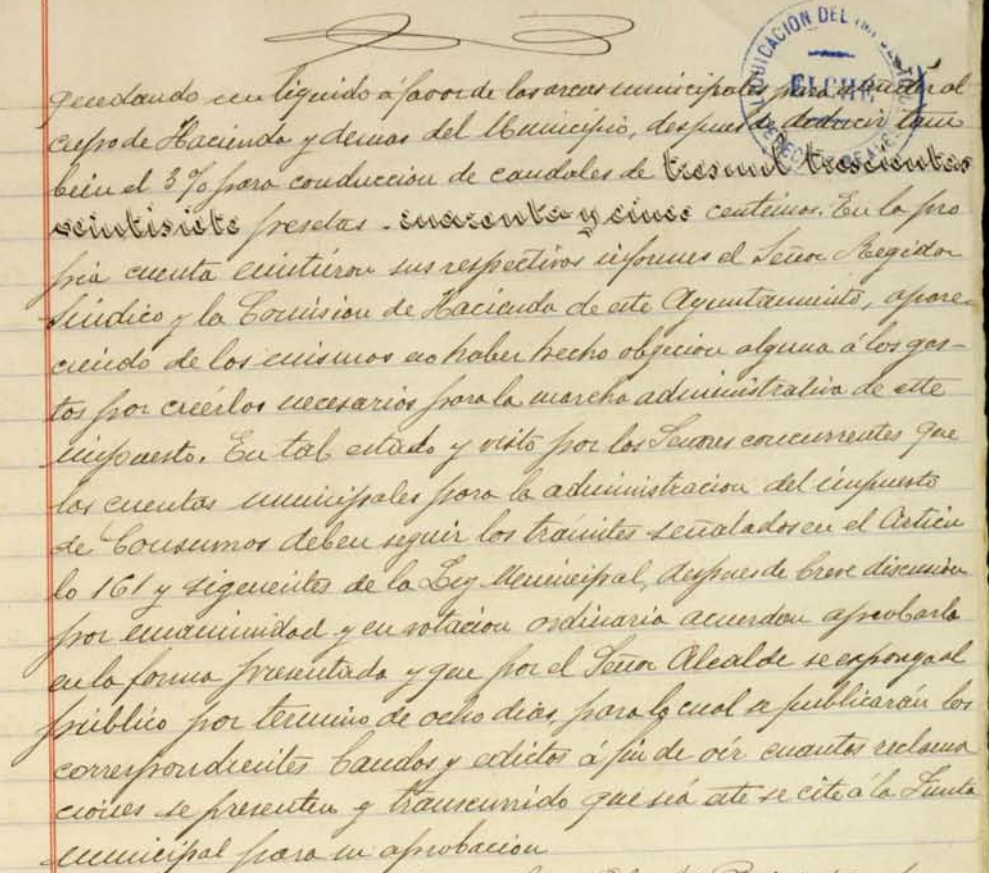 DICACIÓN DEL
ELCHE
quedando un liquido á favor de las arcas municipales para atender al
cupo de Hacienda y demas del Municipio, despues de deducir tam
bein el 3% para conduccion de caudales de tresmil trescientas
veintisiete pesetas - cuarenta y cinco centimos. En la pro
pia cuenta emitieron sus respectivos informes el Señor Regidor
Sindico y la Comision de Hacienda de este Ayuntamiento, apare-
ciendo de los mismos no haber hecho objecion alguna á los gas-
tos por creérlos necesarios para la marcha administrativa de este
impuesto. En tal estado y visto por los Señores concurrentes que
las cuentas municipales para la administracion del impuesto
de Consumos deben seguir los trámites señalados en el Articu
lo 161 y sigenientes de la Ley Municipal, despues de breve discusion
por unanimidad y en votacion ordinaria acuerdan aprobarla
en la forma presentada y que por el Señor Alcalde se exponga al
público por término de ocho dias, para lo cual se publicarán los
correspondientes bandos y edictos á fin de oír cuantas reclama
ciones se presenten y transcurrido que sea este se cite á la Junta
municipal para su aprobacion